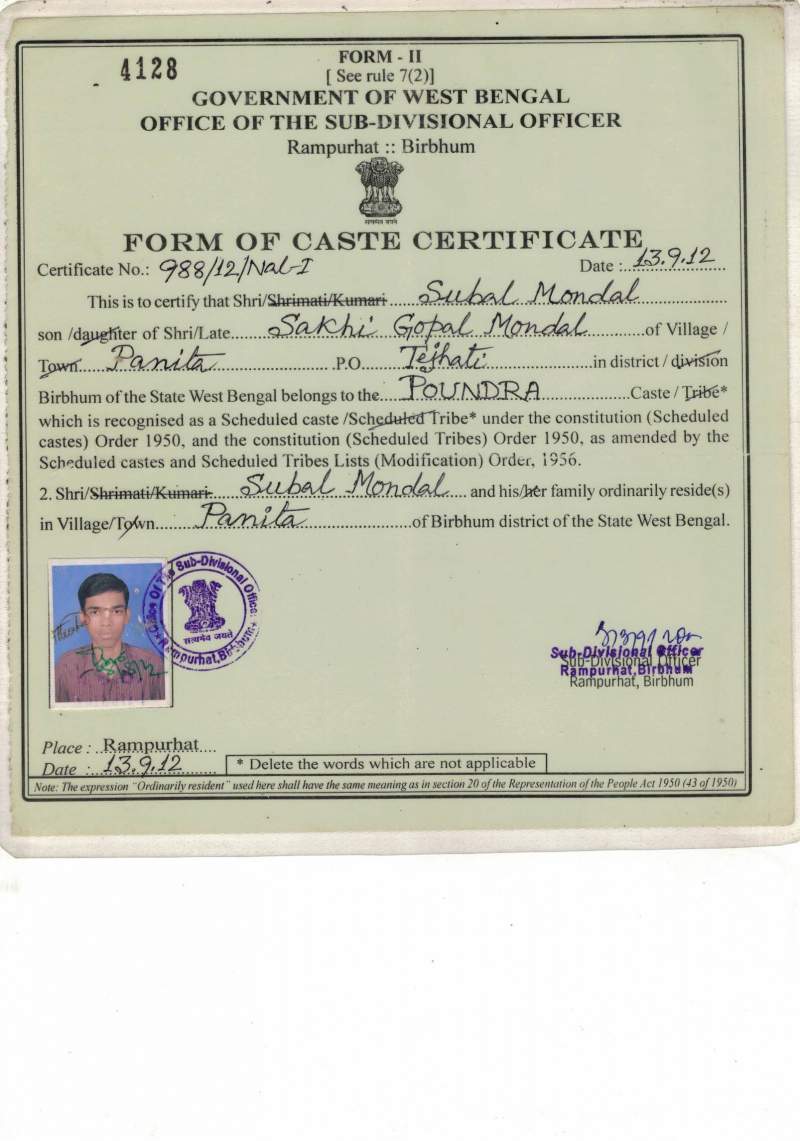 4128
FORM - II
[ See rule 7(2)]
GOVERNMENT OF WEST BENGAL
OFFICE OF THE SUB-DIVISIONAL OFFICER
Rampurhat :: Birbhum
सत्यमेव जयते
FORM OF CASTE CERTIFICATE
Certificate No.: 988/12/Nal-I Date : 13.9.12
This is to certify that Shri/Shrimati/Kumari Subal Mondal
son /daughter of Shri/Late Sakhi Gopal Mondal of Village /
Town Panita P.O. Tejhati in district / division
Birbhum of the State West Bengal belongs to the POUNDRA Caste / Tribe*
which is recognised as a Scheduled caste /Scheduled Tribe* under the constitution (Scheduled
castes) Order 1950, and the constitution (Scheduled Tribes) Order 1950, as amended by the
Scheduled castes and Scheduled Tribes Lists (Modification) Order, 1956.
2. Shri/Shrimati/Kumari Subal Mondal and his/her family ordinarily reside(s)
in Village/Town Panita of Birbhum district of the State West Bengal.
Office Of The Sub-Divisional Officer
सत्यमेव जयते
Rampurhat, Birbhum
Sub-Divisional Officer
Rampurhat, Birbhum
Sub-Divisional Officer
Rampurhat, Birbhum
Place : Rampurhat
Date : 13.9.12
* Delete the words which are not applicable
Note: The expression "Ordinarily resident" used here shall have the same meaning as in section 20 of the Representation of the People Act 1950 (43 of 1950)